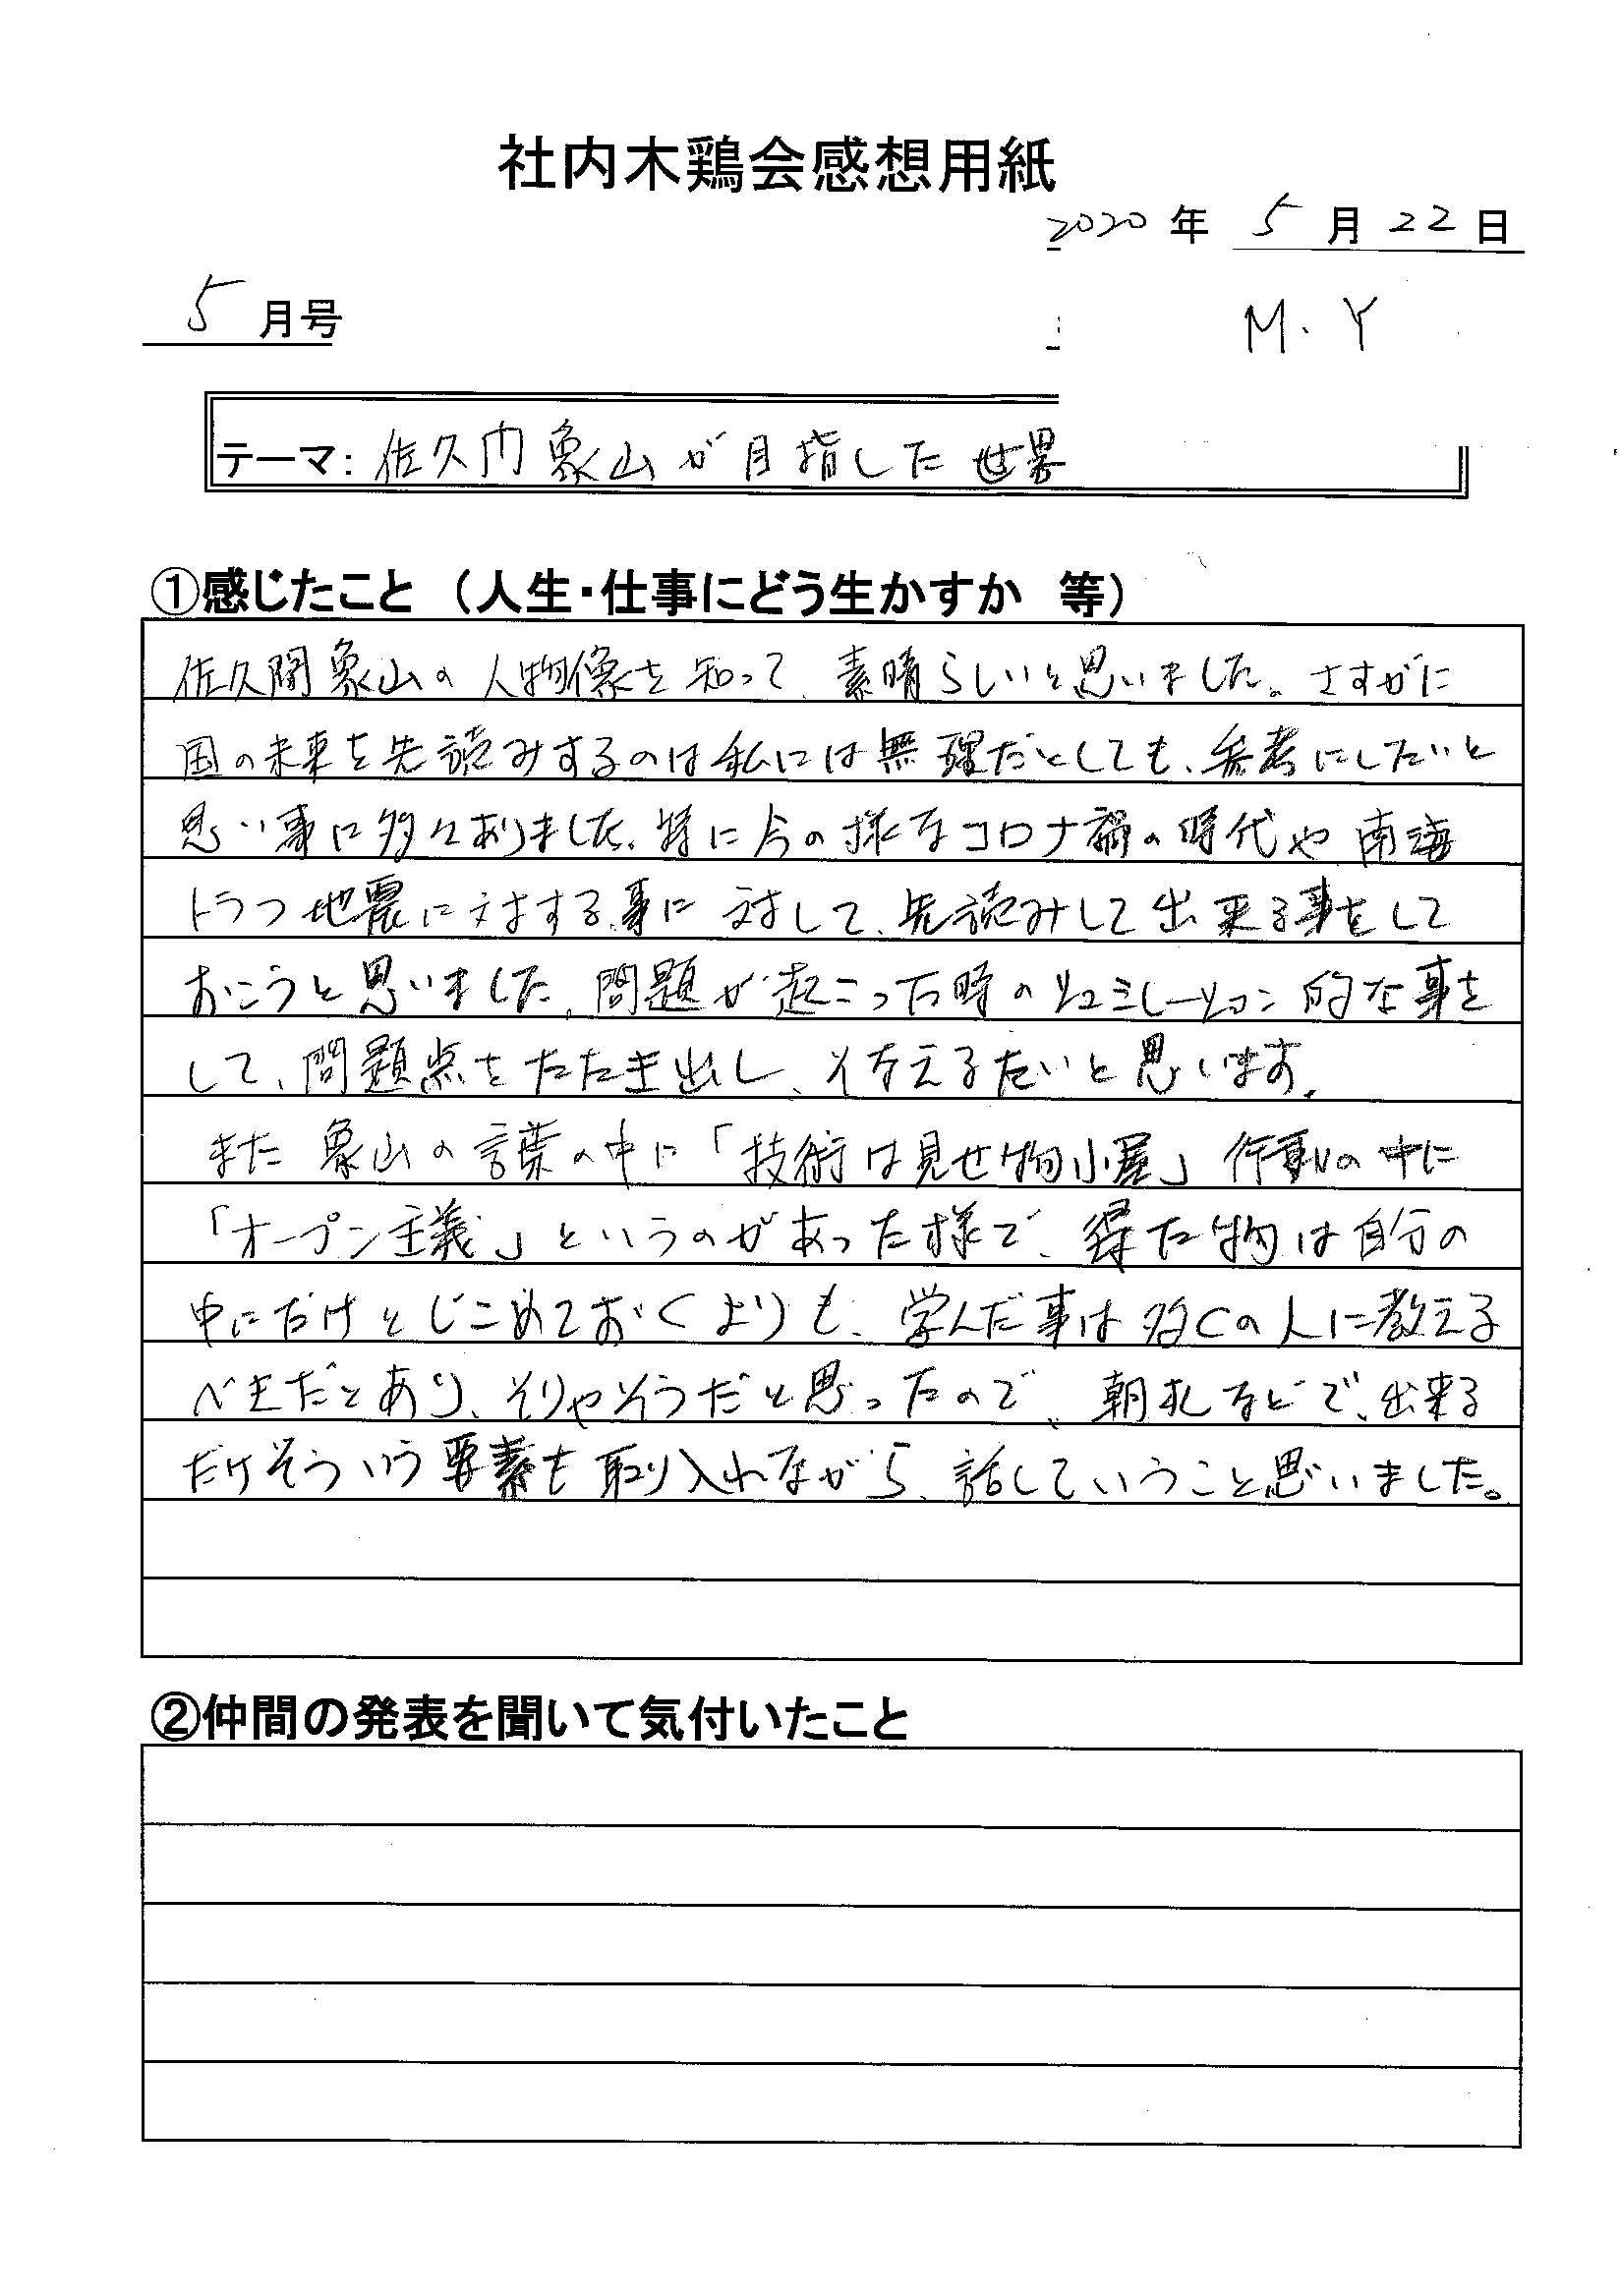 社内木鶏会感想用紙
2020 年 5 月 22 日
5 月号
M.Y
テーマ: 佐久门象山が目指した世界
①感じたこと (人生・仕事にどう生かすか 等)
佐久間象山の人物像を知って、素晴らしいと思いました。さすがに
国の未来を先読みするのは私には無理だとしても、参考にしたいと
思い事に多々ありました。特に今の様なコロナ禍の時代や南海
トラフ地震に対する事に対して、先読みして出来る事をして
おこうと思いました。問題が起こった時のシュミレーション的な事を
して、問題点をたたき出し、そなえるたいと思います。
また象山の言葉の中に「技術は見せ物小屋」行動の中に
「オープン主義」というのがあった様で、得た物は自分の
中にだけとじこめておくよりも、学んだ事は多くの人に教える
べきだとあり、そりゃそうだと思ったので、朝礼などで、出来る
だけそういう要素も取り入れながら、話していうこと思いました。
②仲間の発表を聞いて気付いたこと